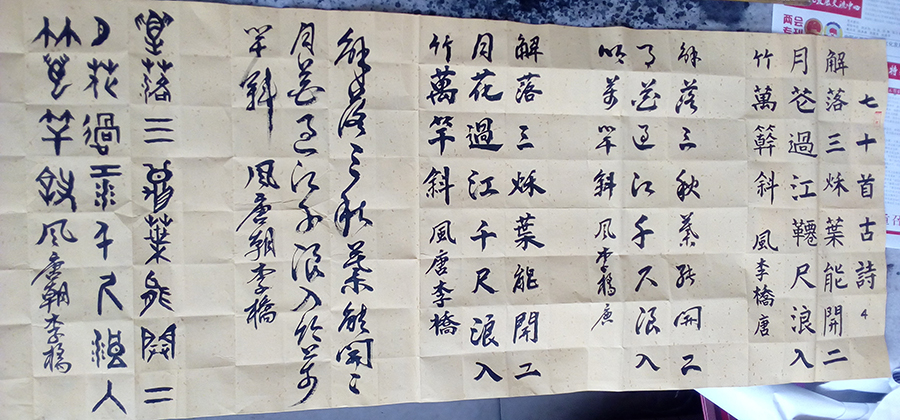 七十首古詩4
解落三秌葉能開二
月芲過江韆尺浪入
竹萬簳斜 風 李橋唐
解落三秋葉能開二
月花過江千尺浪入
竹萬竿斜 風 李橋唐
解落三秌葉能開二
月花過江千尺浪入
竹萬竿斜 風唐李橋
解落三秋葉能開二
月花過江千尺浪入竹萬
竿斜 風唐朝李橋
解落三秋葉能開二
月花過江千尺浪入
竹萬竿斜 風唐朝李橋
两会
专刊